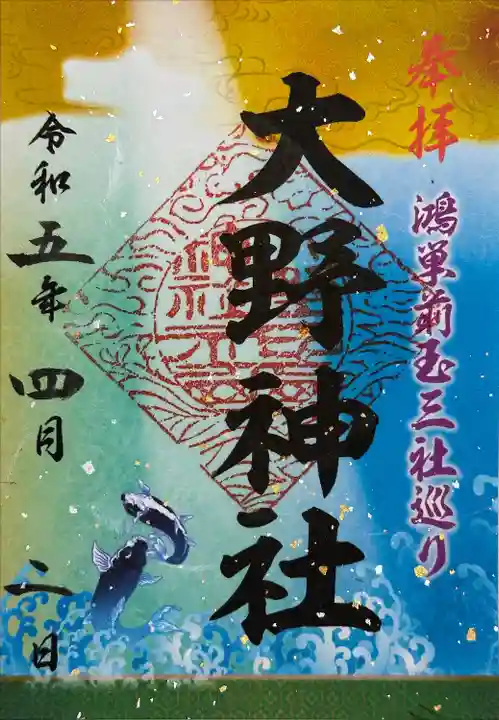 奉拝
鴻巣前玉三社巡り
大野神社
令和五年 四月 二日